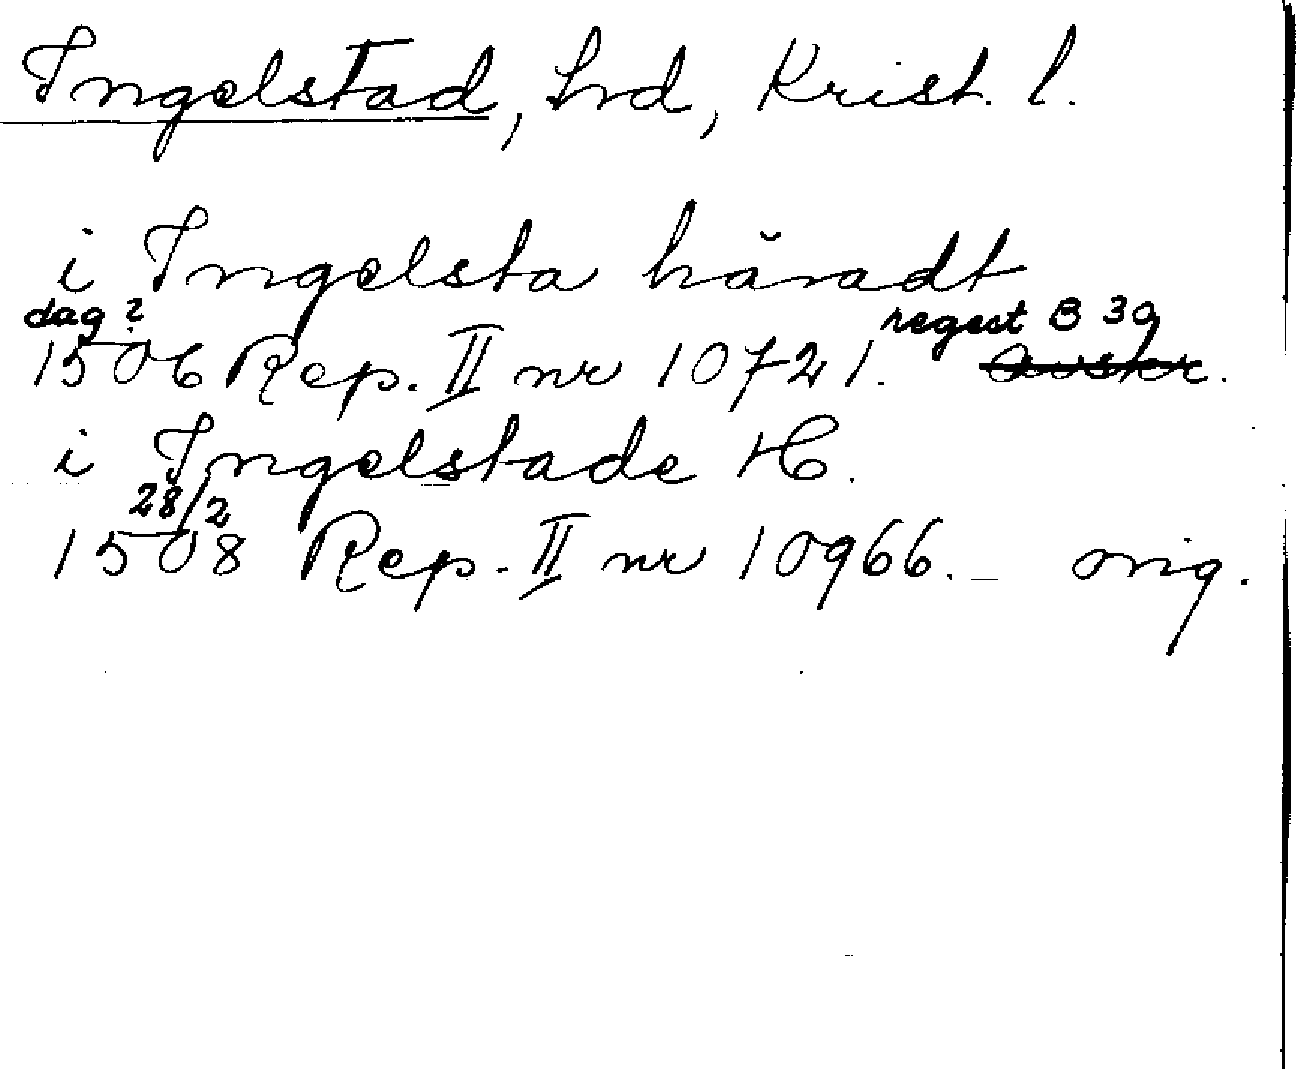 Ingelstad, hrd, Krist. l.
i Ingelsta häradt
dag? regest B 39
1506 Rep. II nr 10721. avskr.
i Ingelstade H.
28/2
1508 Rep. II nr 10966. – orig.